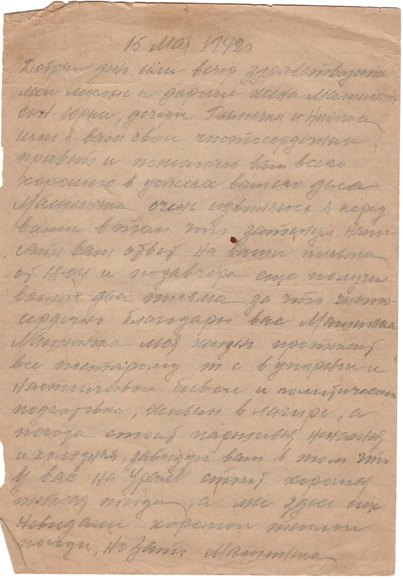 15 мая 1942г
Добрый день или вечер здравствуйте
мои милые и дорогие жена Машинька
сын Юрик, дочери и Ниночка
шлю я вам свой чистосердечный
привет и пожелаю вам всего
хорошего в успехах вашего дела
Машенька очень извиняюсь я перед
вами в том что задержал напи
сать вам ответ на ваши письма
от 18-04 и позавчера еще получил
ваших два письма за что чисто-
сердечно благодарю вас Машинька
Машинька моя жизнь протекает
все по старому т.е. в упорной и
настойчивой боевой и политической
подготовке, живем в лагере, а
погода стоит паршивая
и холодная, завидую вам в том что
у вас на Урале стоит хорошая
теплая погода, а мы здесь еще
невидали хорошой теплой
погоды, но зато Машинька